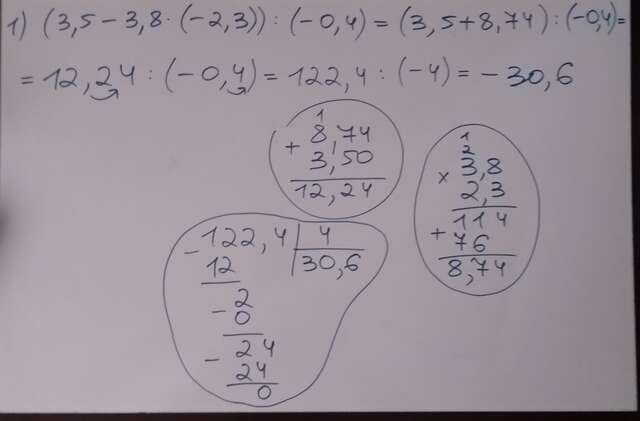 1) (3,5 - 3,8 · (-2,3)) : (-0,4) = (3,5 + 8,74) : (-0,4) =
= 12,24 : (-0,4) = 122,4 : (-4) = -30,6
1
+ 8,74
3,50
12,24
1
2
× 3,8
2,3
114
+ 76
8,74
- 122,4 | 4
12 | 30,6
- 2
0
- 24
24
0